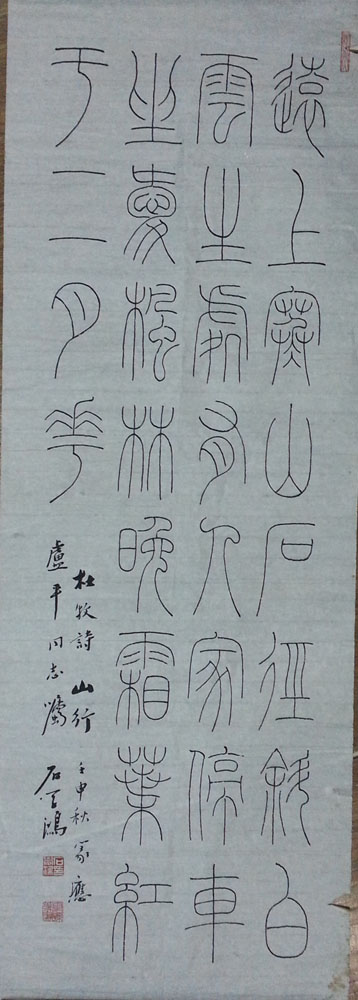 遠上寒山石徑斜白
雲生處有人家停車
坐愛楓林晚霜葉紅
于二月華
杜牧詩 山行 壬申秋篆應
盧平同志囑 石